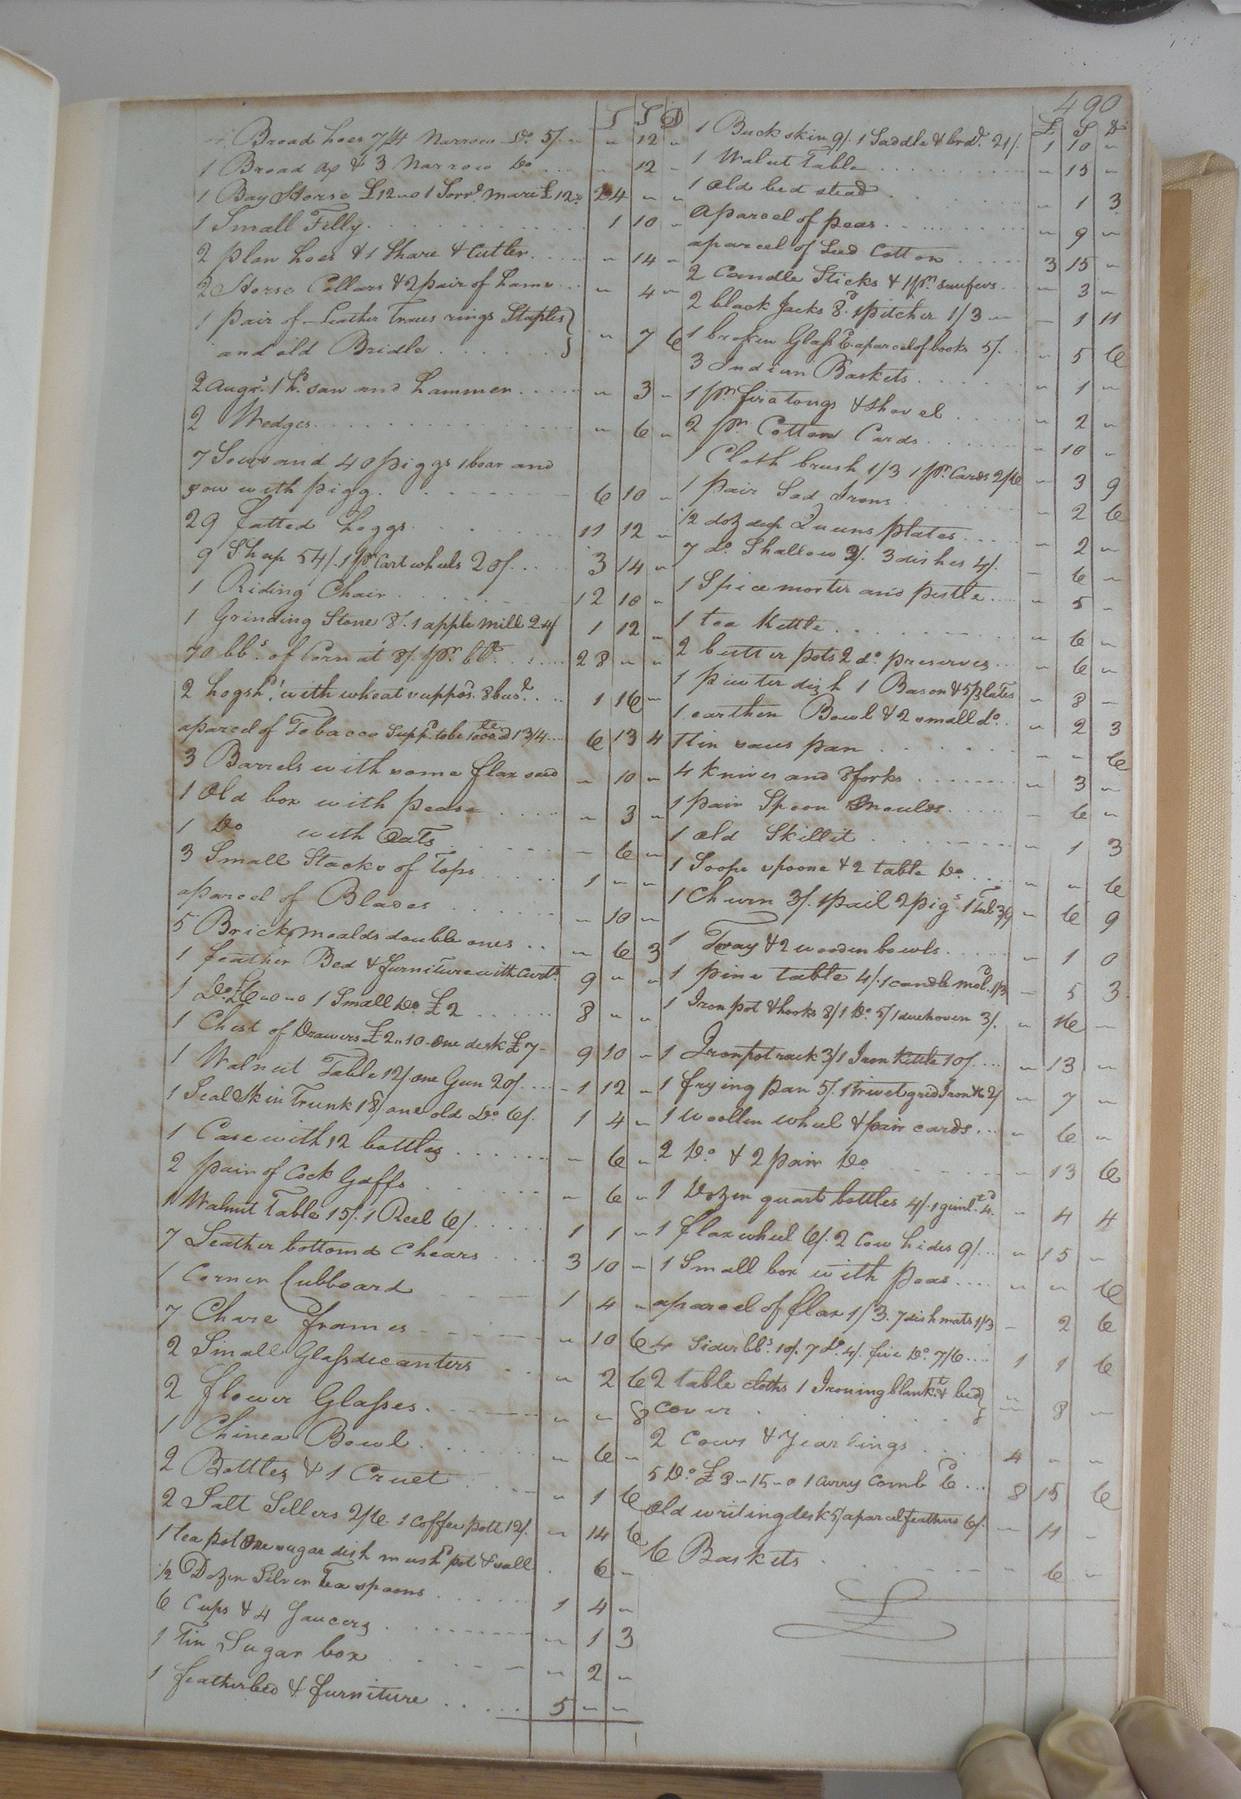 490
£ S D
Broad hoes 7/4 Narrow Do. 5/. " 12 "
1 Broad ax & 3 Narrow Do ... " 12 "
1 Bay Horse £12 " 0 1 Sorrl. mare £12 24 " "
1 Small Filly. . . . 1 10 "
2 plan hoes & 1 Share & Cutler. . . . " 14 "
2 Horse Collars & 2 pair of hams . . " 4 "
1 pair of Leather Traces rings Staples }
and old Bridle . . . . } " 7 6
2 Augrs. 1 h. saw and hammer . . . . " 3 "
2 Wedges. . . . . " 6 "
7 Sows and 40 piggs 1 boar and
sow with pigg. . . . 6 10 "
29 fatted hoggs . . . 11 12 "
9 Sheep 54/. 1 pr. Cart wheels 20/. . . . 3 14 "
1 Riding Chair . . . . 12 10 "
1 Grinding Stone 8/. 1 apple mill 24/ 1 12 "
70 bbs. of Corn at 8/. pr. bb. . . . . 28 " "
2 hogshs. with wheat suppos. 8 bus. . . . 1 16 "
aparcel of Tobacco Supp. tobe 1000 @ 13/4 . . . 6 13 4
3 Barrels with some flax seed " 10 "
1 Old box with pease . . . . " 3 "
1 Do with Oats . . . . " 6 "
3 Small Stacks of Tops . . . . 1 " "
aparcel of Blades . . . . " 10 "
5 Brick moalds double ones . . . " 6 3
1 feather Bed & furniture with Cord. 9 " "
1 Do. £6 " 0 " 0 1 Small Do £2 . . . . 8 " "
1 Chest of Drawers £2 " 10 - One desk £7 - 9 10 "
1 Walnut Table 12/ one Gun 20/. . . . 1 12 "
1 Seal Skin Trunk 18/ one old Do. 6/. 1 4 "
1 Case with 12 bottles . . . . " 6 "
2 pair of Cock Gaffs . . . . " 6 "
1 Walnut Table 15/. 1 Reel 6/ . . . . 1 1 "
7 Leather bottomd Chears . . . . 3 10 "
1 Corner Cubboard . . . . 1 4 "
7 Chare frames . . . . " 10 6
2 Small Glass decanters . . " 2 6
2 flower Glasses . . . . " " 8
1 Chinea Bowl . . . . " 6 "
2 Bottles & 1 Cruet . . . " 1 6
2 Salt Sellers 2/6. 1 Coffee pott 12/. " 14 6
1 tea pot One sugar dish mush. pot & sall . " 6 "
1/2 Dozen Silver Tea spoons . . . . 1 4 "
6 Cups & 4 Saucers . . . . " 1 3
1 Tin Sugar box . . . . " 2 "
1 featherbed & furniture . . . . 5 " "
£ S D
1 Buckskin 9/. 1 Saddle & brdl. 21/. 1 10 "
1 Walnut Table . . . . " 15 "
1 old bed stead . . . . " 1 3
Aparcel of peas . . . . " 9 "
aparcel of Seed Cotton . . . . 3 15 "
2 Candle Sticks & 1 pr. snufers . . " 3 "
2 black Jacks 8d. 1 pitcher 1/3 " " 1 11
1 broken Glass 6d. aparcel of books 5/. " 5 6
3 Indian Baskets . . . . " 1 "
1 pr. fire tongs & Shovel . . . " 2 "
2 pr. Cotton Cards . . . . " 10 "
1 Cloth brush 1/3 1 pr. Cards 2/6 " 3 9
1 pair Sad Irons . . . " 2 6
1/2 doz deep Queens plates . . . . " 2 "
7 do. Shallow 2/. 3 dishes 4/. " 6 "
1 Spice morter and pestle . . . . " 5 "
1 tea Kettle . . . . " 6 "
2 butter pots 2 do. preserves . . . " 6 "
1 pewter dish 1 Bason & 5 plates " 8 "
1 earthen Bowl & 2 small do. . " 2 3
1 tin saus pan . . . . " " 6
4 Knives and 8 forks . . . . " 3 "
1 pair Spoon Moulds . . . . " 6 "
1 old Skillit . . . . " 1 3
1 Soope spoone & 2 table Do . . . " " 6
1 Churn 3/. 1 pail 2 pigs. 1 Tub 3/9 " 6 9
1 Tray & 2 wooden bowls . . . . " 1 0
1 pine table 4/. 1 candle mold. 1/3 " 5 3
1 Iron pot & hooks 8/ 1 Do. 5/ 1 duchoven 3/. " 16 "
1 Iron pot rack 3/ 1 Iron Kettle 10/. . . . " 13 "
1 frying pan 5/. 1 trivet grid Iron &c 2/ " 7 "
1 woollen wheel & pair cards . . . " 6 "
2 Do. & 2 pair Do . . . . " 13 6
1 Dozen quart bottles 4/. 1 4d. " 4 4
1 flax wheel 6/. 2 Cow hides 9/. . . " 15 "
1 Small box with peas . . . . " " 6
aparcel of flax 1/3. 7 dish mats 1/3 " 2 6
4 Sider bbs. 10/. 7 do. 4/. five Do. 7/6 . . . . 1 1 6
2 table cloths 1 Ironing blankt. & bed }
cover . . . . } " 8 "
2 Cows & Yearlings . . . . 4 " "
5 Do. £8 " 15 " 0 1 Curry Comb 6d. . . . 8 15 6
old writing desk 5/ aparcel feathers 6/. " 11 "
6 Baskets . . . . " 6 "
£